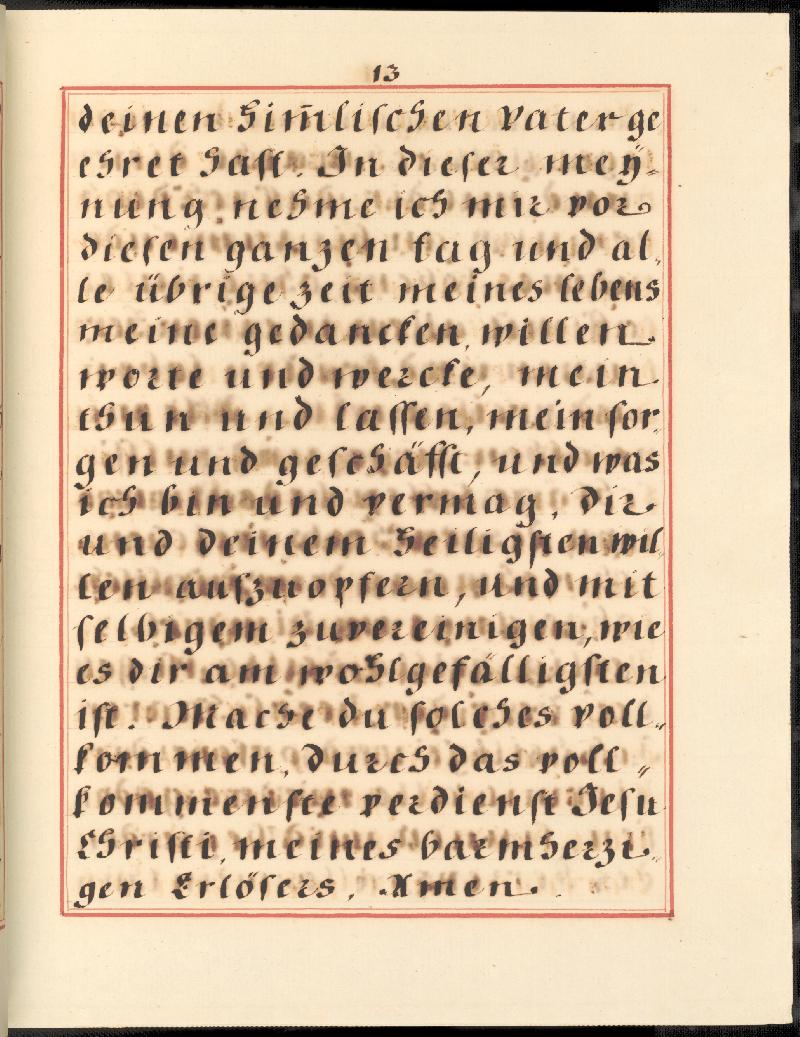 13
deinen him̄liſchen vater ge
ehret haſt. In dieſer meÿ-
nung nehme ich mir vor
dieſen ganzen tag und al„
le übrige zeit meines lebens
meine gedancken, willen
worte und wercke, mein
thun und laſſen, mein ſor„
gen und geſchäfft, und was
ich bin und vermag, dir
und deinem heiligſten wil„
len aufzuopfern, und mit
ſelbigem zuvereinigen, wie
es dir am wohlgefälligſten
iſt. Mache du ſolches voll„
kommen, durch das voll„
kommenſte verdienſt Jeſu
Chriſti, meines barmherzi„
gen Erlöſers. Amen.